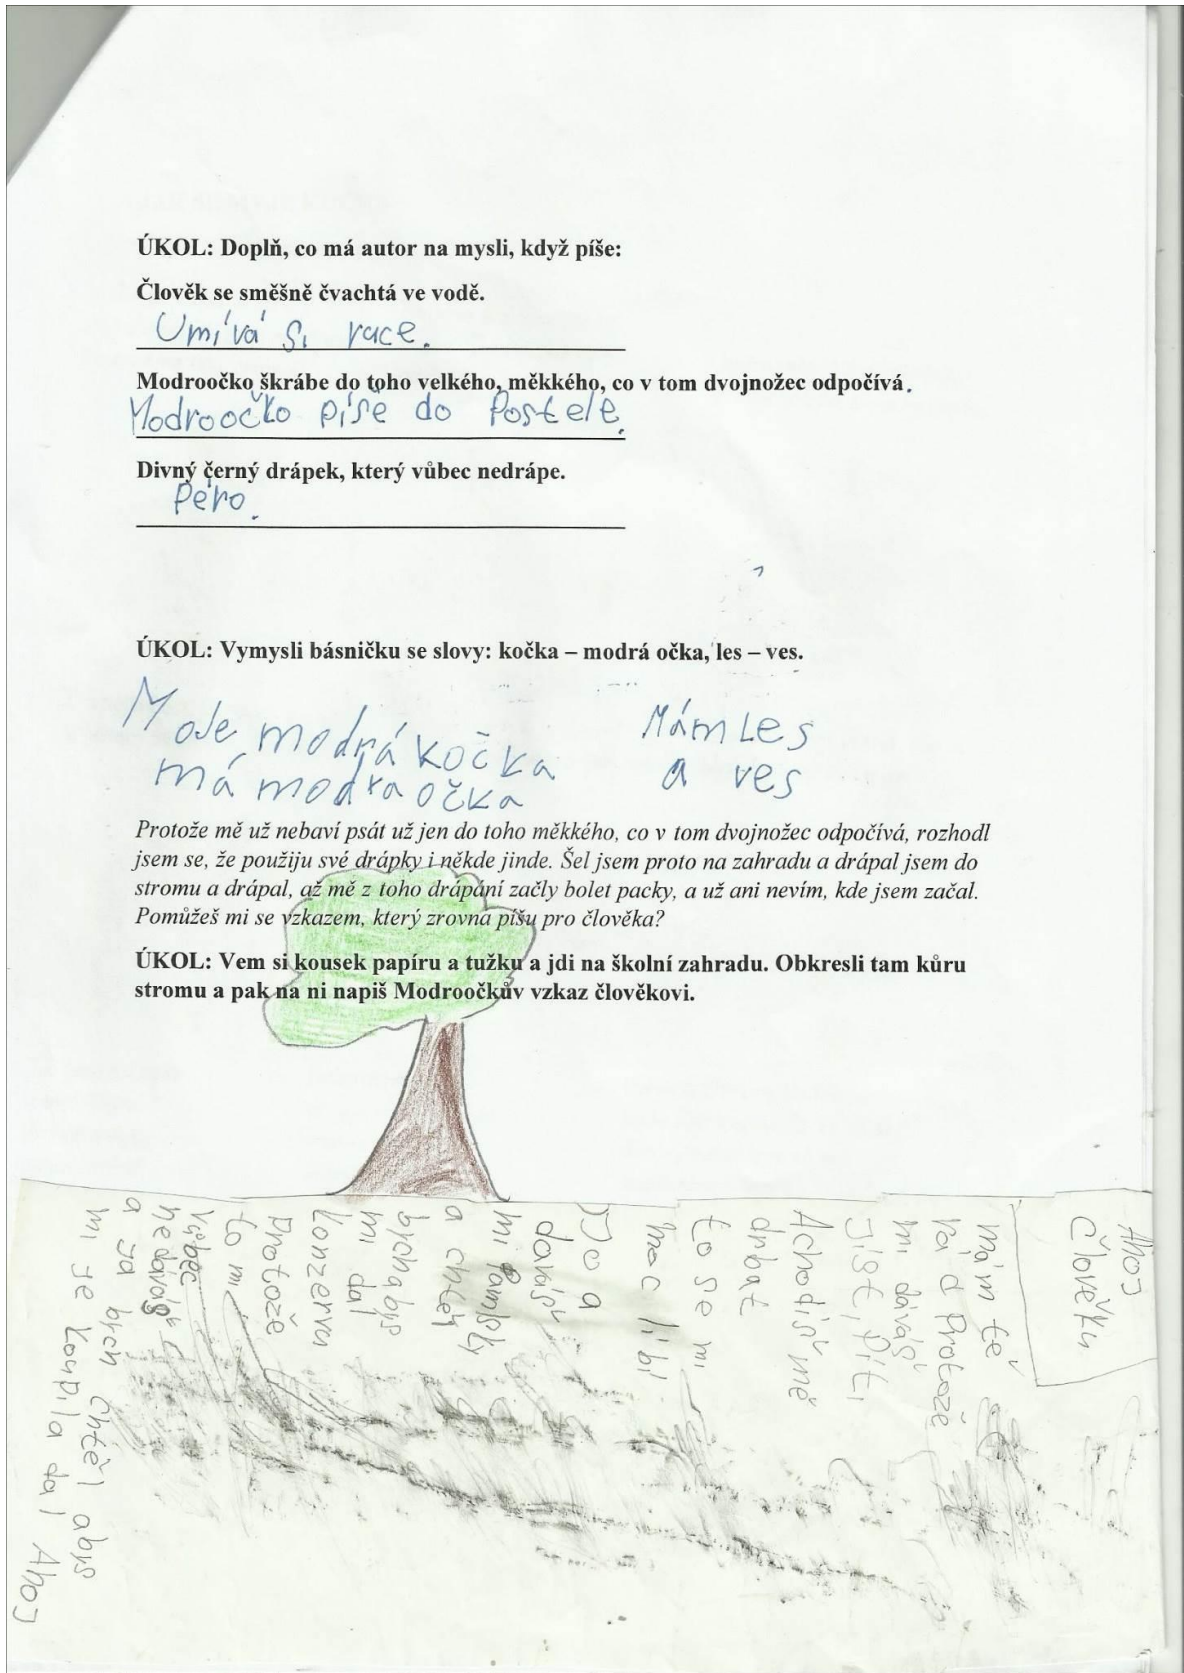 ÚKOL: Doplň, co má autor na mysli, když píše:
Člověk se směšně čvachtá ve vodě.
Umívá si race.
Modroočko škrábe do toho velkého, měkkého, co v tom dvojnožec odpočívá.
Modroočko píše do Postele.
Divný černý drápek, který vůbec nedrápe.
Péro.
ÚKOL: Vymysli básničku se slovy: kočka – modrá očka, les – ves.
Moje modrá kočka
má modra očka
Mám Les
a ves
Protože mě už nebaví psát už jen do toho měkkého, co v tom dvojnožec odpočívá, rozhodl
jsem se, že použiju své drápky i někde jinde. Šel jsem proto na zahradu a drápal jsem do
stromu a drápal, až mě z toho drápání začly bolet packy, a už ani nevím, kde jsem začal.
Pomůžeš mi se vzkazem, který zrovna píšu pro člověka?
ÚKOL: Vem si kousek papíru a tužku a jdi na školní zahradu. Obkresli tam kůru
stromu a pak na ni napiš Modroočkův vzkaz člověkovi.
Ahoj
Člověku
mám tě
rád Protože
mi dáváš
jíst, Píti
Achodíš mě
drbat
to se mi
moc líbí
Jo a
dáváš
mi Pamlsky
a chtěl
bycha bys
mi dal
konzervu
Protože
to mi
vůbec
nedáváš
a ja bych chtěl abys
mi je koupila dal Ahoj